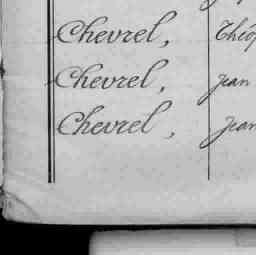 Chevrel, Théo
Chevrel, Jean
Chevrel, Jean